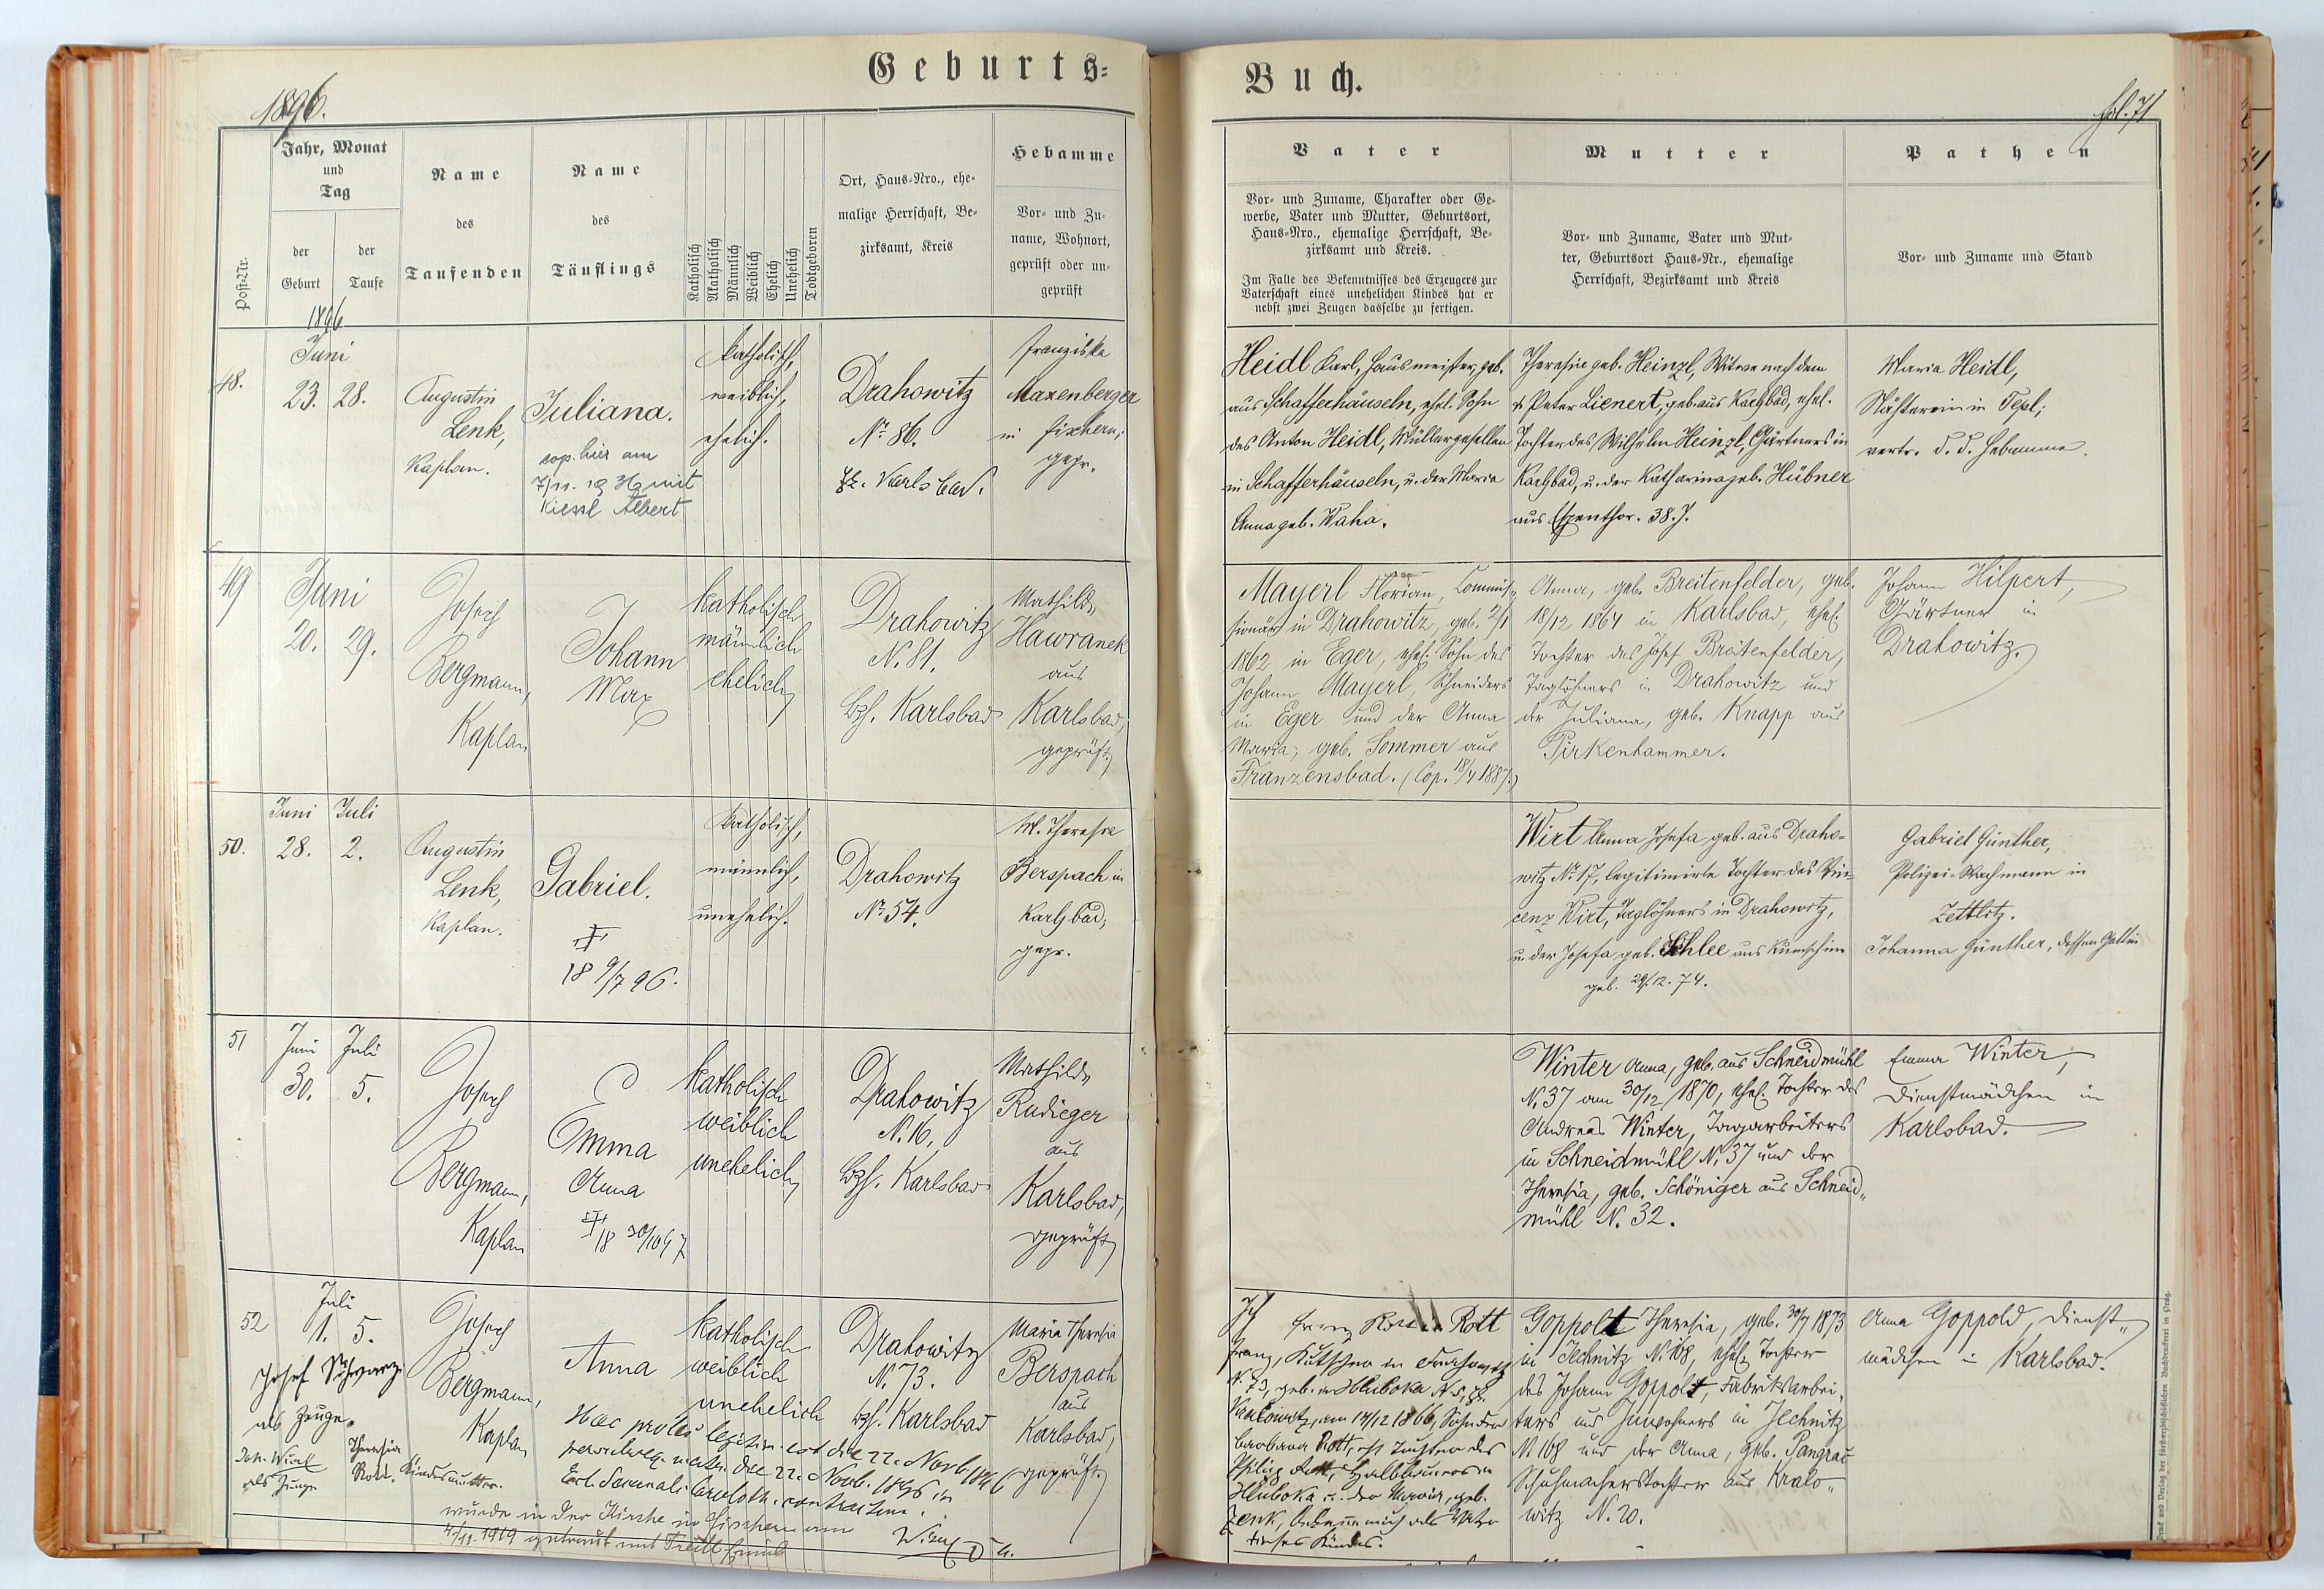 Geburts=
Buch.
1896.
fol. 71
Post-Nr.
Jahr, Monat
und
Tag
der
Geburt
der
Taufe
Name
des
Taufenden
Name
des
Täuflings
Katholisch
Akatholisch
Männlich
Weiblich
Ehelich
Unehelich
Todtgeboren
Ort, Haus-Nro., ehe-
malige Herrschaft, Be-
zirksamt, Kreis
Hebamme
Vor- und Zu-
name, Wohnort,
geprüft oder un-
geprüft
Vater
Vor- und Zuname, Charakter oder Ge-
werbe, Vater und Mutter, Geburtsort,
Haus-Nro., ehemalige Herrschaft, Be-
zirksamt und Kreis.
Im Falle des Bekenntnisses des Erzeugers zur
Vaterschaft eines unehelichen Kindes hat er
nebst zwei Zeugen dasselbe zu fertigen.
Mutter
Vor- und Zuname, Vater und Mut-
ter, Geburtsort Haus-Nr., ehemalige
Herrschaft, Bezirksamt und Kreis
Pathen
Vor- und Zuname und Stand
1896
Juni
48.
23. 28.
Augustin
Lenk,
Kaplan.
Juliana.
cop. hier am
7/11. 1936 mit
Kiessl Albert
katholisch,
weiblich,
ehelich.
Drahowitz
No 86.
Bz. Karlsbad.
Franziska
Maxenberger
in Fischern;
gepr.
Heidl Karl, Hausmeister, geb.
aus Schafferhäuseln, ehel. Sohn
des Anton Heidl, Müllergesellen
in Schafferhäuseln, u. der Maria
Anna geb. Waha.
Theresia geb. Heinzl, Witwe nach dem
† Peter Lienert, geb. aus Karlsbad, ehel.
Tochter des Wilhelm Heinzl, Gärtners in
Karlsbad, u. der Katharina geb. Hübner
aus Espenthor. 38. J.
Maria Heidl,
Nähterin in Tepl;
vertr. d. d. Hebamme.
49
Juni
20. 29.
Josef
Bergmann,
Kaplan
Johann
Max
katholisch
männlich
ehelich
Drahowitz
N. 81.
Bzh. Karlsbad
Mathilde
Hawranek
aus
Karlsbad,
geprüft
Mayerl Florian, Commis-
sionär in Drahowitz, geb. 2/1
1862 in Eger, ehel. Sohn des
Johann Mayerl, Schneiders
in Eger und der Anna
Maria, geb. Sommer aus
Franzensbad. (Cop. 18/4 1887.)
Anna, geb. Breitenfelder, geb.
18/12 1864 in Karlsbad, ehel.
Tochter des Josef Breitenfelder,
Taglöhners in Drahowitz und
der Juliana, geb. Knapp aus
Pirkenhammer.
Johann Hilpert,
Gärtner in
Drahowitz.
50.
Juni Juli
28. 2.
Augustin
Lenk,
Kaplan.
Gabriel.
†
18 9/7 96.
katholisch,
männlich,
unehelich.
Drahowitz
No 54.
M. Theresia
Berspach in
Karlsbad,
gepr.
Wirt Anna Josefa geb. aus Draho-
witz No 17, legitimirte Tochter des Vin-
cenz Wirt, Taglöhners in Drahowitz,
u. der Josefa geb. Schlee aus
geb. 29/12. 74.
Gabriel Günther,
Polizei-Wachmann in
Zettlitz.
Johanna Günther, dessen Gattin
51
Juni Juli
30. 5.
Josef
Bergmann,
Kaplan
Emma
Anna
† 18 30/10 97
katholisch
weiblich
unehelich
Drahowitz
N. 16,
Bzh. Karlsbad
Mathilde
Rudieger
aus
Karlsbad,
geprüft
Winter Anna, geb. aus Schneidmühl
N. 37 am 30/12 1870, ehel. Tochter des
Andreas Winter, Tagarbeiters
in Schneidmühl N. 37 und der
Theresia, geb. Schöniger aus Schneid-
mühl N. 32.
Emma Winter,
Dienstmädchen in
Karlsbad.
52
Juli
1. 5.
Josef Schwarz
als Zeuge.
als Zeuge
Theresia
Rott. Kindesmutter.
Josef
Bergmann,
Kaplan
Anna
katholisch
weiblich
unehelich
Drahowitz
N. 73.
Bzh. Karlsbad
Maria Theresia
Berspach
aus
Karlsbad,
geprüft.
Haec proles legitim. est die 22. Novb. 1896
matr. die 22. Novb. 1896 in
wurde in der Kirche in Fischern am
4/11. 1919 getraut mit
Ich Franz Rott
Franz, Kutscher in Drahowitz
N. 73, geb. in Hluboka N 5, Bz.
Kralowitz, am 14/12 1866, Sohn der
Barbara Rott, ehl. Tochter des
Philipp Rott,
Hluboka u. der Maria, geb.
Zenk, bekenne mich als Vater
dieses Kindes.
Goppolt Theresia, geb. 30/7 1873
in Jechnitz N. 168, ehel. Tochter
des Johann Goppolt, Fabriksarbei-
ters und Inwohners in Jechnitz
N 168 und der Anna, geb. Pangrač
Schuhmacherstochter aus Kralo-
witz N. 20.
Anna Goppold, Dienst-
mädchen in Karlsbad.
Druck und Verlag der fürsterzbischöflichen Buchdruckerei in Prag.